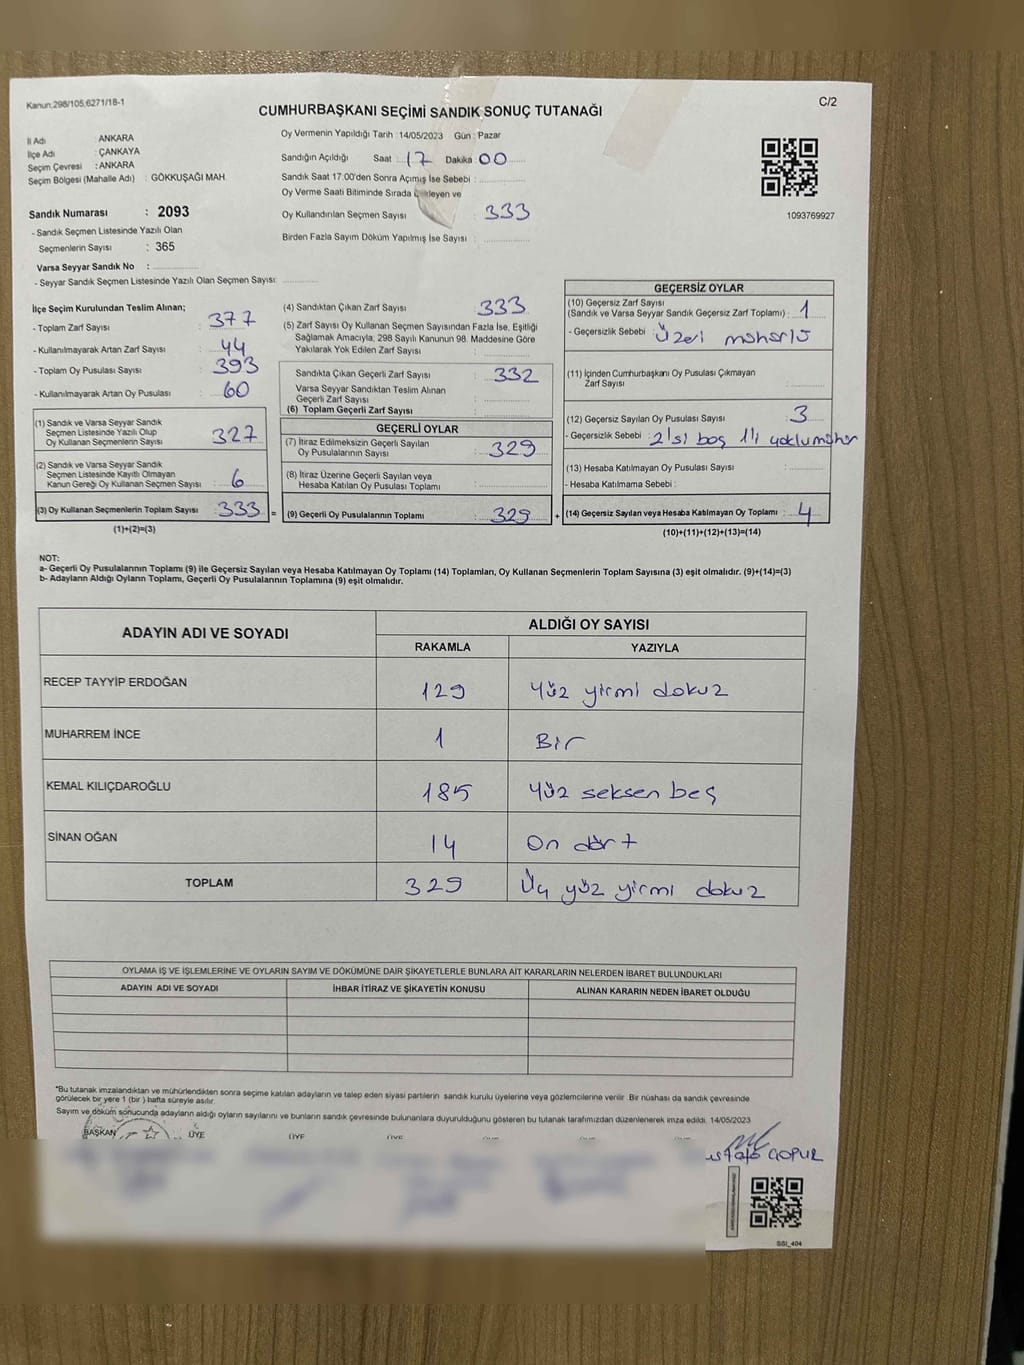 Kanun;298/105;6271/18-1
C/2
CUMHURBAŞKANI SEÇİMİ SANDIK SONUÇ TUTANAĞI
İl Adı : ANKARA
İlçe Adı : ÇANKAYA
Seçim Çevresi : ANKARA
Seçim Bölgesi (Mahalle Adı) : GÖKKUŞAĞI MAH.
Sandık Numarası : 2093
- Sandık Seçmen Listesinde Yazılı Olan
Seçmenlerin Sayısı : 365
Varsa Seyyar Sandık No :
- Seyyar Sandık Seçmen Listesinde Yazılı Olan Seçmen Sayısı:
Oy Vermenin Yapıldığı Tarih : 14/05/2023 Gün : Pazar
Sandığın Açıldığı Saat 17 Dakika 00
Sandık Saat 17:00'den Sonra Açımış İse Sebebi :
Oy Verme Saati Bitiminde Sırada ve
Oy Kullandırılan Seçmen Sayısı : 333
Birden Fazla Sayım Döküm Yapılmış İse Sayısı :
1093769927
İlçe Seçim Kurulundan Teslim Alınan;
- Toplam Zarf Sayısı : 377
- Kullanılmayarak Artan Zarf Sayısı : 44
- Toplam Oy Pusulası Sayısı : 393
- Kullanılmayarak Artan Oy Pusulası : 60
(1) Sandık ve Varsa Seyyar Sandık
Seçmen Listesinde Yazılı Olup
Oy Kullanan Seçmenlerin Sayısı : 327
(2) Sandık ve Varsa Seyyar Sandık
Seçmen Listesinde Kayıtlı Olmayan
Kanun Gereği Oy Kullanan Seçmen Sayısı : 6
(3) Oy Kullanan Seçmenlerin Toplam Sayısı : 333 =
(1)+(2)=(3)
(4) Sandıktan Çıkan Zarf Sayısı : 333
(5) Zarf Sayısı Oy Kullanan Seçmen Sayısından Fazla İse, Eşitliği
Sağlamak Amacıyla; 298 Sayılı Kanunun 98. Maddesine Göre
Yakılarak Yok Edilen Zarf Sayısı :
Sandıkta Çıkan Geçerli Zarf Sayısı : 332
Varsa Seyyar Sandıktan Teslim Alınan
Geçerli Zarf Sayısı :
(6) Toplam Geçerli Zarf Sayısı :
GEÇERLİ OYLAR
(7) İtiraz Edilmeksizin Geçerli Sayılan
Oy Pusulalarının Sayısı : 329
(8) İtiraz Üzerine Geçerli Sayılan veya
Hesaba Katılan Oy Pusulası Toplamı :
(9) Geçerli Oy Pusulalarının Toplamı : 329 +
GEÇERSİZ OYLAR
(10) Geçersiz Zarf Sayısı
(Sandık ve Varsa Seyyar Sandık Geçersiz Zarf Toplamı) : 1
- Geçersizlik Sebebi : Üzeri mühürlü
(11) İçinden Cumhurbaşkanı Oy Pusulası Çıkmayan
Zarf Sayısı :
(12) Geçersiz Sayılan Oy Pusulası Sayısı : 3
- Geçersizlik Sebebi : 2'si boş 1'i
(13) Hesaba Katılmayan Oy Pusulası Sayısı :
- Hesaba Katılmama Sebebi :
(14) Geçersiz Sayılan veya Hesaba Katılmayan Oy Toplamı : 4
(10)+(11)+(12)+(13)=(14)
NOT:
a- Geçerli Oy Pusulalarının Toplamı (9) ile Geçersiz Sayılan veya Hesaba Katılmayan Oy Toplamı (14) Toplamları, Oy Kullanan Seçmenlerin Toplam Sayısına (3) eşit olmalıdır. (9)+(14)=(3)
b- Adayların Aldığı Oyların Toplamı, Geçerli Oy Pusulalarının Toplamına (9) eşit olmalıdır.
ADAYIN ADI VE SOYADI
ALDIĞI OY SAYISI
RAKAMLA YAZIYLA
RECEP TAYYİP ERDOĞAN 129 Yüz yirmi dokuz
MUHARREM İNCE 1 Bir
KEMAL KILIÇDAROĞLU 185 Yüz seksen beş
SİNAN OĞAN 14 On dört
TOPLAM 329 Üç yüz yirmi dokuz
OYLAMA İŞ VE İŞLEMLERİNE VE OYLARIN SAYIM VE DÖKÜMÜNE DAİR ŞİKAYETLERLE BUNLARA AİT KARARLARIN NELERDEN İBARET BULUNDUKLARI
ADAYIN ADI VE SOYADI İHBAR İTİRAZ VE ŞİKAYETİN KONUSU ALINAN KARARIN NEDEN İBARET OLDUĞU
*Bu tutanak imzalandıktan ve mühürlendikten sonra seçime katılan adayların ve talep eden siyasi partilerin sandık kurulu üyelerine veya gözlemcilerine verilir. Bir nüshası da sandık çevresinde
görülecek bir yere 1 (bir) hafta süreyle asılır.
Sayım ve döküm sonucunda adayların aldığı oyların sayılarını ve bunların sandık çevresinde bulunanlara duyurulduğunu gösteren bu tutanak tarafımızdan düzenlenerek imza edildi. 14/05/2023
BAŞKAN ÜYE ÜYE ÜYE
SGI_404